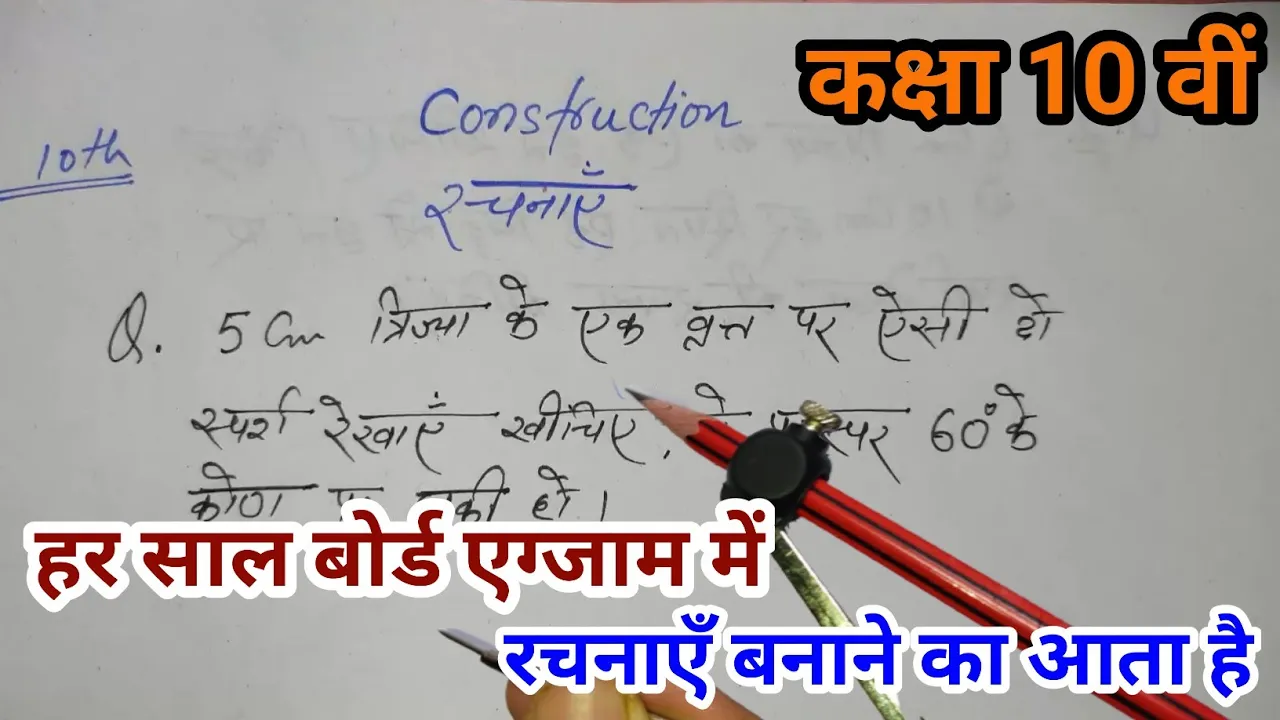 कक्षा 10 वीं
10th
Construction
रचनाएँ
Q. 5 Cm त्रिज्या के एक वृत्त पर ऐसी दो
स्पर्श रेखाएँ खींचिए, 60° के
कोण हो।
हर साल बोर्ड एग्जाम में
रचनाएँ बनाने का आता है